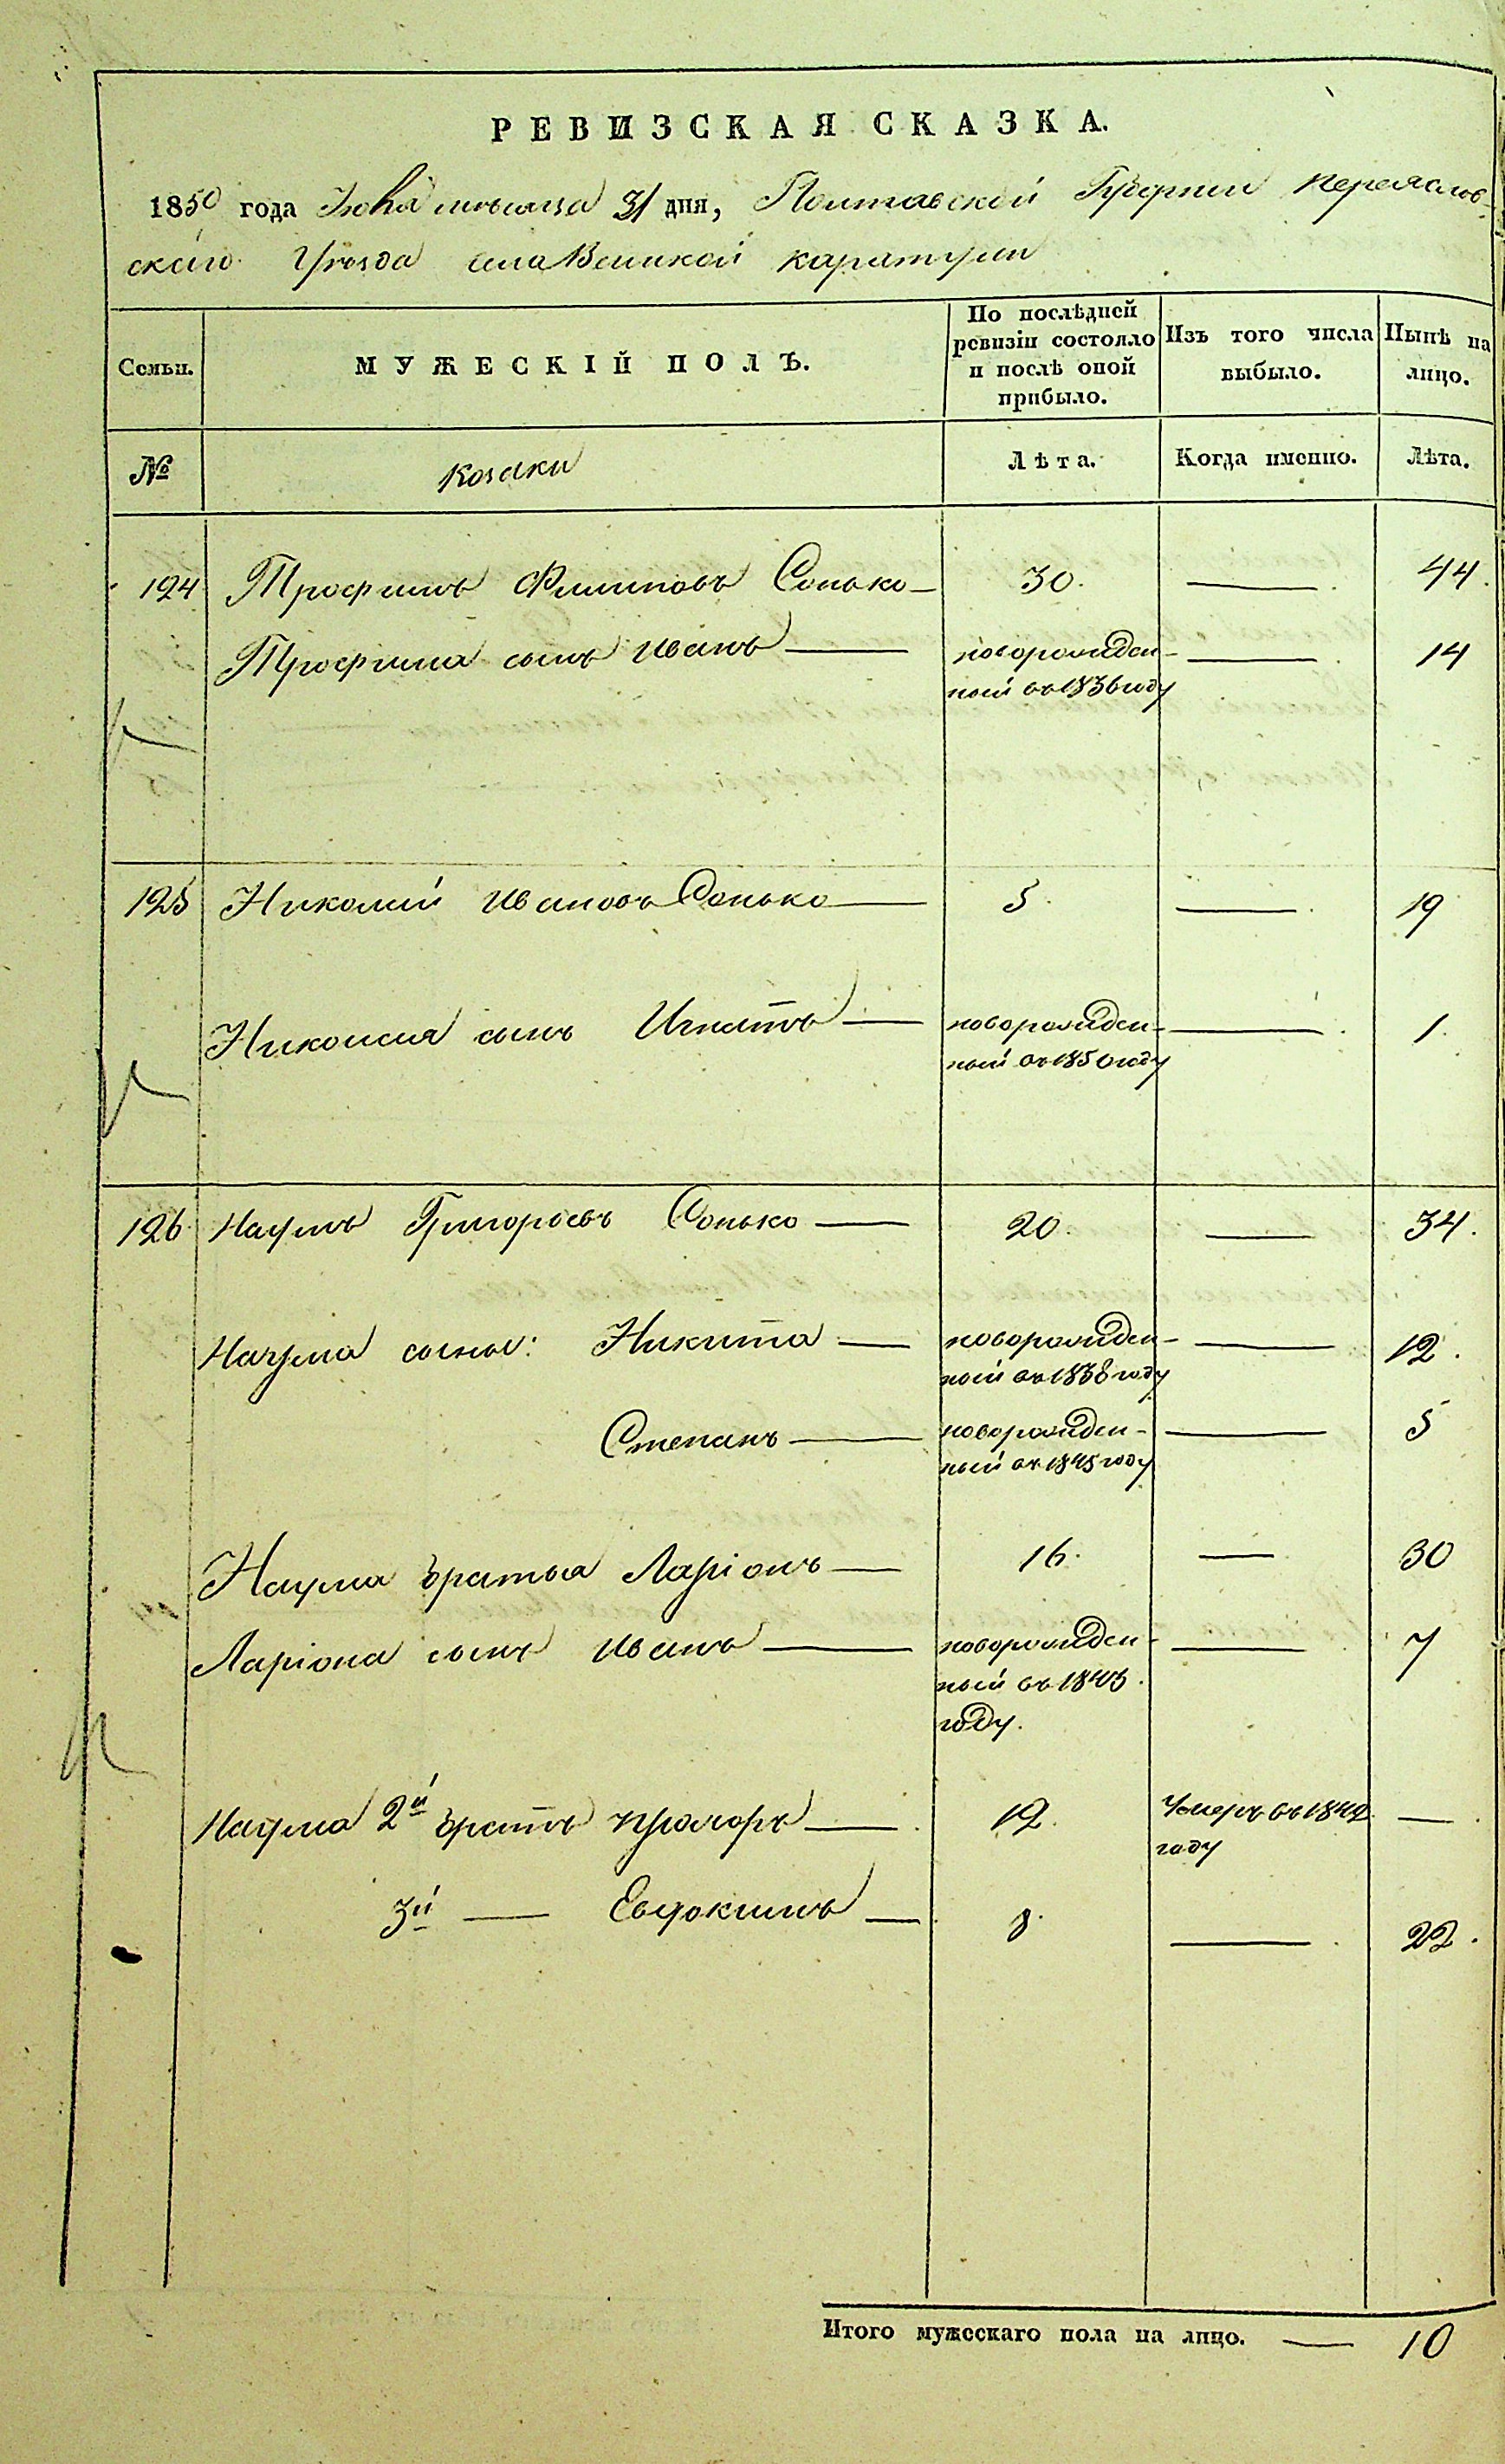 РЕВИЗСКАЯ СКАЗКА.
1850 года мѣсяца 31 дня, Полтавской Губерніи Переяслов-
скаго Уѣзда села Великой каратули
Семьи. МУЖЕСКІЙ ПОЛЪ. По послѣдней ревизіи состояло и послѣ оной прибыло. Изъ того числа выбыло. Нынѣ на лицо.
№ Козаки Лѣта. Когда именно. Лѣта.
124 Трофимъ Филиповъ Сонько — 30. — 44.
Трофима сынъ Иванъ — новорожден-
ный въ 1836 году — 14
125 Николай Ивановъ Сонько — 5. — 19
Николая сынъ Игнатъ — новорожден-
ный въ 1850 году — 1.
126 Наумъ Григорьевъ Сонько — 20. — 34.
Наума сыны: Никита — новорожден-
ный въ 1838 году — 12.
Степанъ — новорожден-
ный въ 1845 году — 5
Наума братья Ларіонъ — 16. — 30
Ларіона сынъ Иванъ — новорожден-
ный въ 1843.
году. — 7
Наума 2й братъ прохоръ — 12. Умеръ въ 1842
году —
3й — Евдокимъ — 8. — 22.
Итого мужескаго пола на лицо. — 10